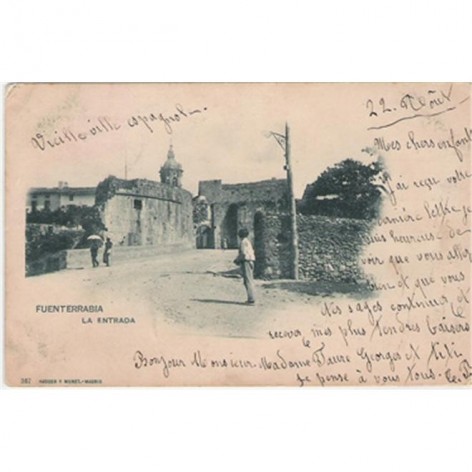 22 Août
Vieille ville espagnol.
Mes chers enfants
J'ai reçu votre
dernière lettre je
suis heureuse de
voir que vous allez
bien et que vous
êtes sages continuez et
recevez mes plus tendres baisers
Bonjour Monsieur Madame Faure Georges et titi
je pense à vous tous.
FUENTERRABIA
LA ENTRADA
HAUSER Y MENET.-MADRID